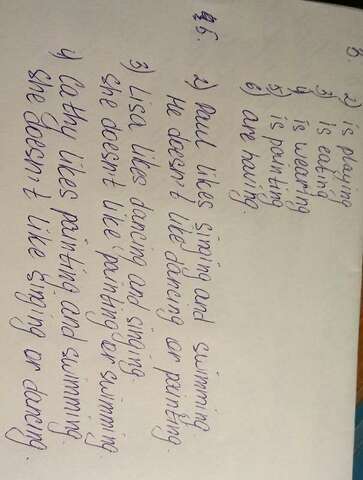 8. 2) is playing
3) is eating
4) is wearing
5) is painting
6) are having.
2) Paul likes singing and swimming
He doesn't like dancing or painting.
3) Lisa likes dancing and singing.
She doesn't like painting or swimming.
4) Cathy likes painting and swimming.
She doesn't like singing or dancing.